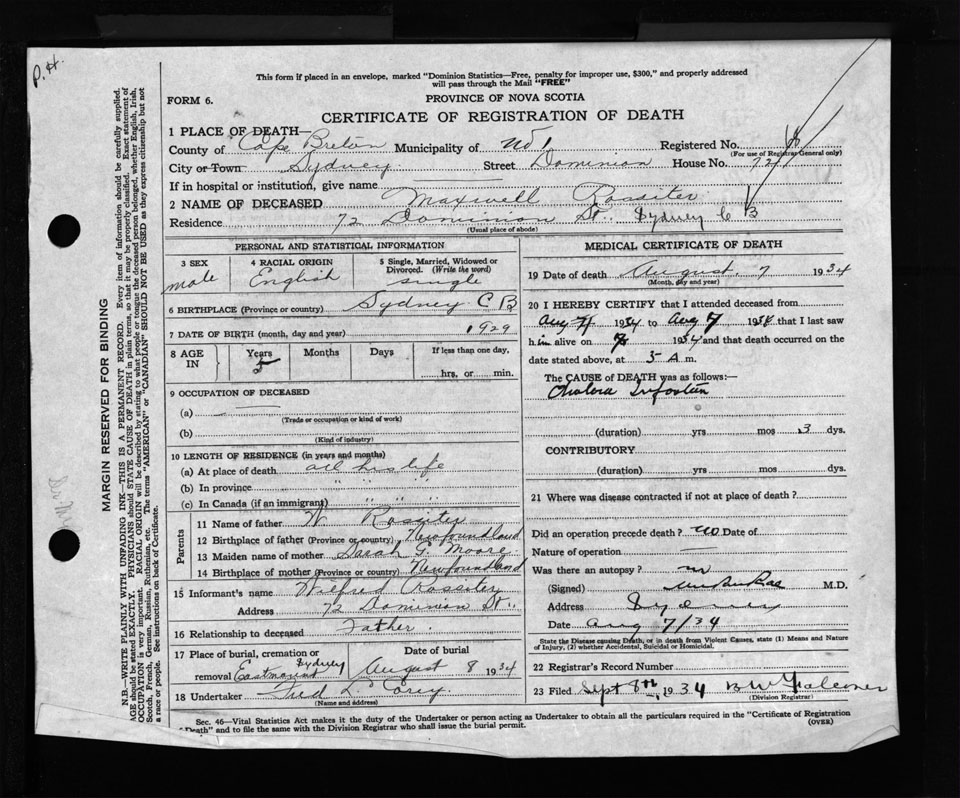 P.H.
This form if placed in an envelope, marked "Dominion Statistics—Free, penalty for improper use, $300," and properly addressed
will pass through the Mail "FREE"
FORM 6.
PROVINCE OF NOVA SCOTIA
CERTIFICATE OF REGISTRATION OF DEATH
1 PLACE OF DEATH—
County of Cape Breton Municipality of No 1 Registered No.
(For use of Registrar General only)
City or Town Sydney Street Dominion House No. 72
If in hospital or institution, give name
2 NAME OF DECEASED Maxwell Rossiter
Residence 72 Dominion St. Sydney C B
(Usual place of abode)
PERSONAL AND STATISTICAL INFORMATION
3 SEX male
4 RACIAL ORIGIN English
5 Single, Married, Widowed or Divorced. (Write the word) single
6 BIRTHPLACE (Province or country) Sydney C.B
7 DATE OF BIRTH (month, day and year) 1929
8 AGE IN Years 5 Months Days If less than one day, hrs. or min.
9 OCCUPATION OF DECEASED
(a)
(Trade or occupation or kind of work)
(b)
(Kind of industry)
10 LENGTH OF RESIDENCE (in years and months)
(a) At place of death all his life
(b) In province " " "
(c) In Canada (if an immigrant) " " "
Parents
11 Name of father W Rossiter
12 Birthplace of father (Province or country) Newfoundland
13 Maiden name of mother Sarah G. Moore
14 Birthplace of mother (Province or country) Newfoundland
15 Informant's name Wilfred Rossiter
Address 72 Dominion St.
16 Relationship to deceased Father.
17 Place of burial, cremation or removal Eastmount Sydney
Date of burial August 8 1934
18 Undertaker Fred L Corey.
(Name and address)
MEDICAL CERTIFICATE OF DEATH
19 Date of death August 7 1934
(Month, day and year)
20 I HEREBY CERTIFY that I attended deceased from
Aug 4 1934 to Aug 7 1934 that I last saw
him alive on 7 1934 and that death occurred on the
date stated above, at 5 A m.
The CAUSE of DEATH was as follows:—
Cholera
(duration) yrs mos 3 dys.
CONTRIBUTORY
(duration) yrs mos dys.
21 Where was disease contracted if not at place of death?
Did an operation precede death? no Date of
Nature of operation —
Was there an autopsy?
(Signed) M.D.
Address Sydney
Date Aug 7/34
State the Disease causing Death, or in death from Violent Causes, state (1) Means and Nature
of Injury, (2) whether Accidental, Suicidal or Homicidal.
22 Registrar's Record Number
23 Filed Sept 8th, 1934 B W Falconer
(Division Registrar)
Sec. 46—Vital Statistics Act makes it the duty of the Undertaker or person acting as Undertaker to obtain all the particulars required in the "Certificate of Registration
of Death" and to file the same with the Division Registrar who shall issue the burial permit.
(OVER)
MARGIN RESERVED FOR BINDING
N.B.—WRITE PLAINLY WITH UNFADING INK—THIS IS A PERMANENT RECORD. Every item of information should be carefully supplied.
AGE should be stated EXACTLY. PHYSICIANS should STATE CAUSE OF DEATH in plain terms, so that it may be properly classified. Exact statement of
OCCUPATION is very important. RACIAL ORIGIN will be described by stating to what people or tongue the deceased person belonged, whether English, Irish,
Scotch, French, German, Russian, Ruthenian, etc. The terms "AMERICAN" or "CANADIAN" SHOULD NOT BE USED as they express citizenship but not
a race or people. See instructions on back of Certificate.